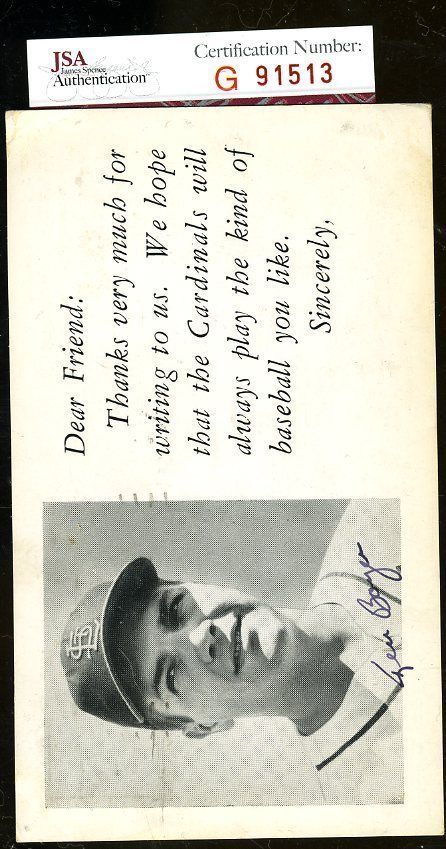 JSA
James Spence
Authentication
Certification Number:
G 91513
Dear Friend:
Thanks very much for
writing to us. We hope
that the Cardinals will
always play the kind of
baseball you like.
Sincerely,
STL
Ken Boyer